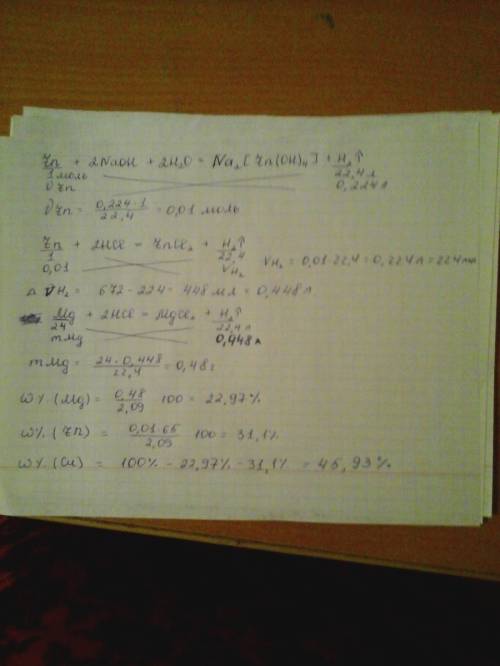 Zn + 2NaOH + 2H₂O = Na₂[Zn(OH)₄] + H₂↑
1 моль 22,4 л
νZn 0,224 л
νZn = 0,224·1 / 22,4 = 0,01 моль
Zn + 2HCl = ZnCl₂ + H₂↑
1 22,4
0,01 VH₂ VH₂ = 0,01·22,4 = 0,224 л = 224 мл
Δ VH₂ = 672 - 224 = 448 мл = 0,448 л
Mg + 2HCl = MgCl₂ + H₂↑
24 22,4 л
mMg 0,448 л
mMg = 24·0,448 / 22,4 = 0,48 г
ω%(Mg) = 0,48 / 2,09 100 = 22,97%
ω%(Zn) = 0,01·65 / 2,09 100 = 31,1%
ω%(Cu) = 100% - 22,97% - 31,1% = 45,93%